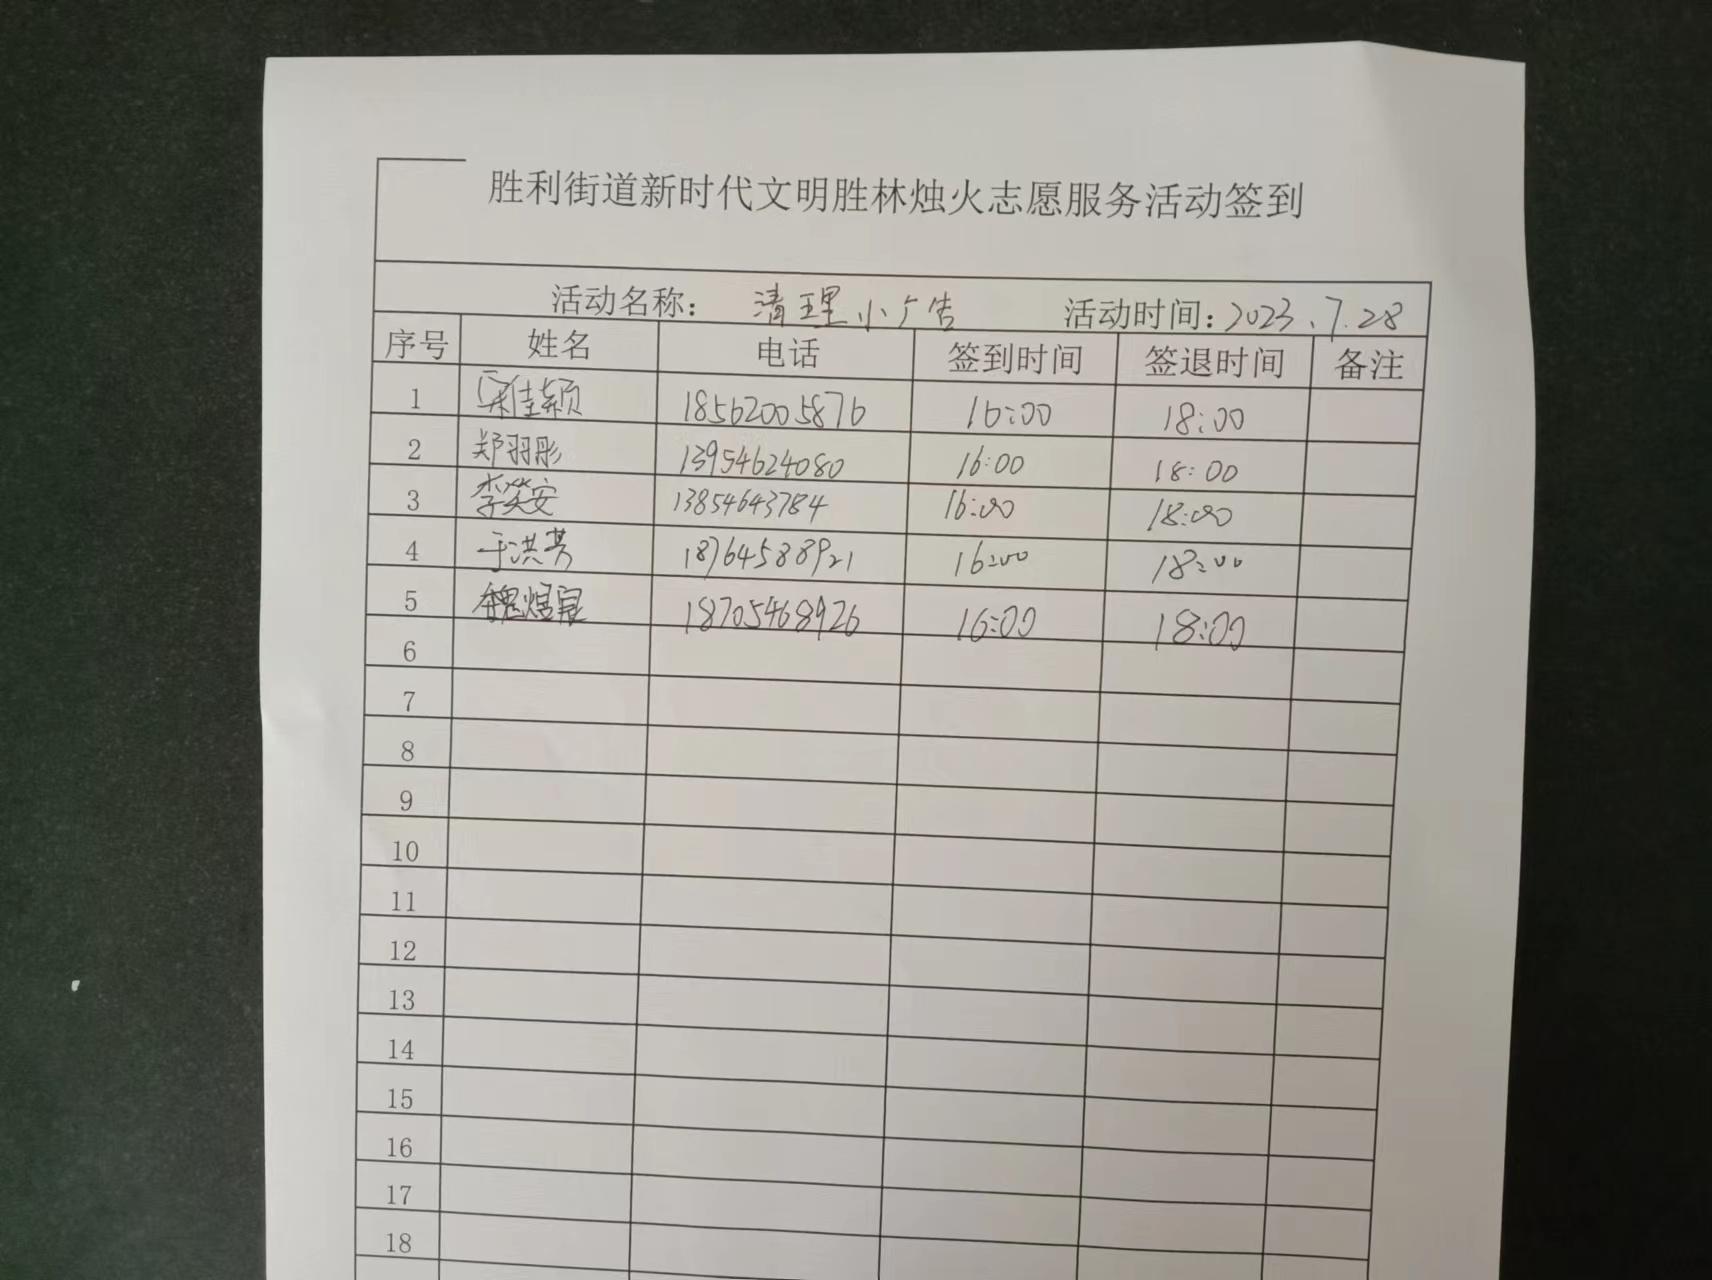 胜利街道新时代文明胜林烛火志愿服务活动签到
活动名称： 清理小广告 活动时间：2023.7.28
序号 姓名 电话 签到时间 签退时间 备注
1 佳颖 18562005876 16:00 18:00
2 郑羽彤 13954624080 16:00 18:00
3 李安 13854643784 16:00 18:00
4 于洪芳 18764588921 16:00 18:00
5 魏煜宸 18705468926 16:00 18:00
6
7
8
9
10
11
12
13
14
15
16
17
18